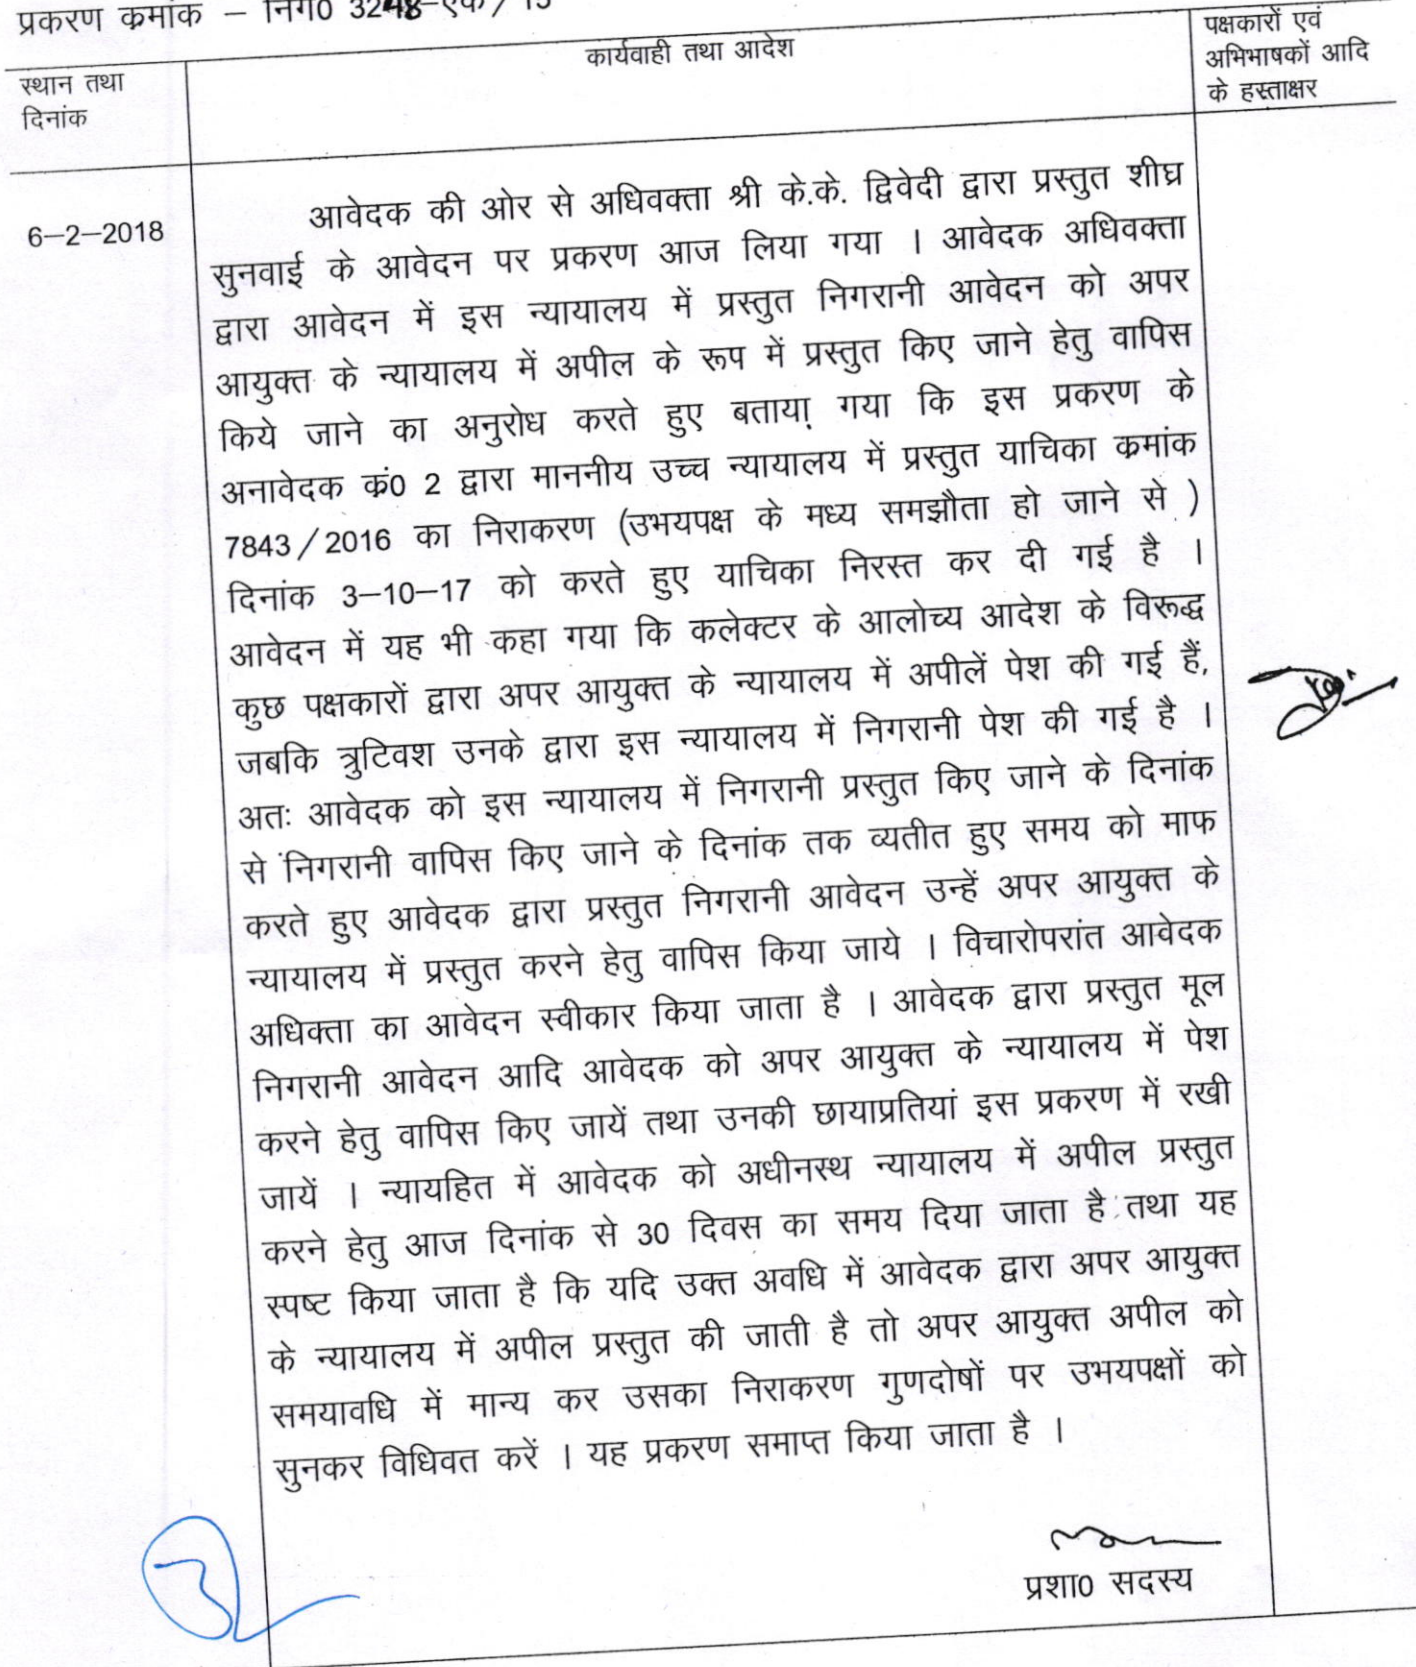 प्रकरण क्रमांक – निग0 3248-एक/15
स्थान तथा
दिनांक
कार्यवाही तथा आदेश
पक्षकारों एवं
अभिभाषकों आदि
के हस्ताक्षर
6–2–2018
आवेदक की ओर से अधिवक्ता श्री के.के. द्विवेदी द्वारा प्रस्तुत शीघ्र
सुनवाई के आवेदन पर प्रकरण आज लिया गया । आवेदक अधिवक्ता
द्वारा आवेदन में इस न्यायालय में प्रस्तुत निगरानी आवेदन को अपर
आयुक्त के न्यायालय में अपील के रूप में प्रस्तुत किए जाने हेतु वापिस
किये जाने का अनुरोध करते हुए बताया गया कि इस प्रकरण के
अनावेदक कं0 2 द्वारा माननीय उच्च न्यायालय में प्रस्तुत याचिका क्रमांक
7843/2016 का निराकरण (उभयपक्ष के मध्य समझौता हो जाने से )
दिनांक 3–10–17 को करते हुए याचिका निरस्त कर दी गई है ।
आवेदन में यह भी कहा गया कि कलेक्टर के आलोच्य आदेश के विरूद्ध
कुछ पक्षकारों द्वारा अपर आयुक्त के न्यायालय में अपीलें पेश की गई हैं,
जबकि त्रुटिवश उनके द्वारा इस न्यायालय में निगरानी पेश की गई है ।
अतः आवेदक को इस न्यायालय में निगरानी प्रस्तुत किए जाने के दिनांक
से निगरानी वापिस किए जाने के दिनांक तक व्यतीत हुए समय को माफ
करते हुए आवेदक द्वारा प्रस्तुत निगरानी आवेदन उन्हें अपर आयुक्त के
न्यायालय में प्रस्तुत करने हेतु वापिस किया जाये । विचारोपरांत आवेदक
अधिक्ता का आवेदन स्वीकार किया जाता है । आवेदक द्वारा प्रस्तुत मूल
निगरानी आवेदन आदि आवेदक को अपर आयुक्त के न्यायालय में पेश
करने हेतु वापिस किए जायें तथा उनकी छायाप्रतियां इस प्रकरण में रखी
जायें । न्यायहित में आवेदक को अधीनस्थ न्यायालय में अपील प्रस्तुत
करने हेतु आज दिनांक से 30 दिवस का समय दिया जाता है तथा यह
स्पष्ट किया जाता है कि यदि उक्त अवधि में आवेदक द्वारा अपर आयुक्त
के न्यायालय में अपील प्रस्तुत की जाती है तो अपर आयुक्त अपील को
समयावधि में मान्य कर उसका निराकरण गुणदोषों पर उभयपक्षों को
सुनकर विधिवत करें । यह प्रकरण समाप्त किया जाता है ।
प्रशा0 सदस्य